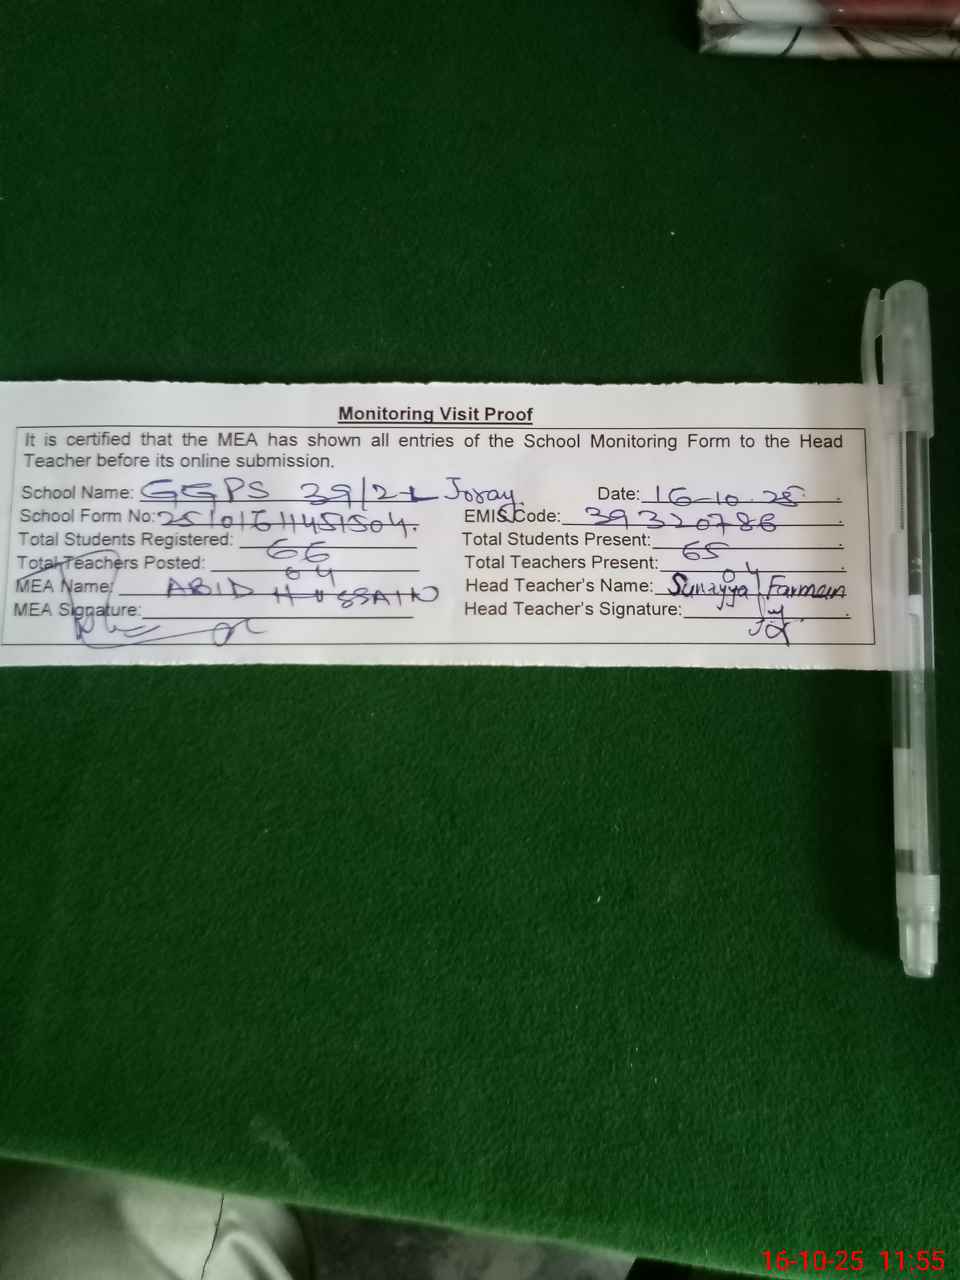 Monitoring Visit Proof
It is certified that the MEA has shown all entries of the School Monitoring Form to the Head
Teacher before its online submission.
School Name: GGPS 39/2-L Joray. Date: 16-10-25.
School Form No: 25101611451504. EMIS Code: 39320786
Total Students Registered: 66 Total Students Present: 65
Total Teachers Posted: 04 Total Teachers Present: 04
MEA Name: ABID HUSSAIN Head Teacher's Name:
MEA Signature: Head Teacher's Signature:
16-10-25 11:55